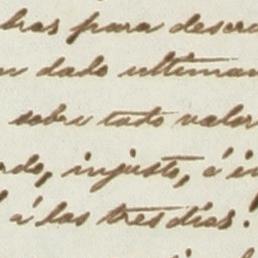 bras para descri
n dado ultiman
sobre todo valor
rdo, injusto, ó in
á las tres días.